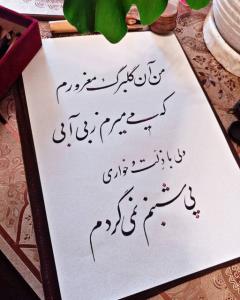 من آن گلبرگ مغرورم
که می میرم ز بی آبی
ولی با ذلت و خواری
پی شبنم نمی گردم